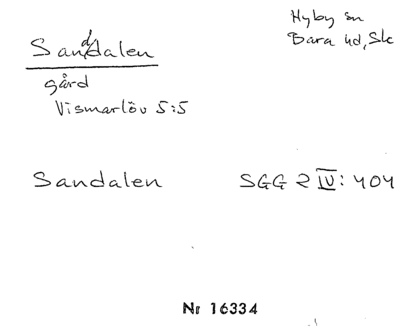 Hyby sn
Bara hd, Sk
Sanddalen
gård
Vismarlöv 5:5
Sandalen SGG 2 IV: 404
Nr 16334